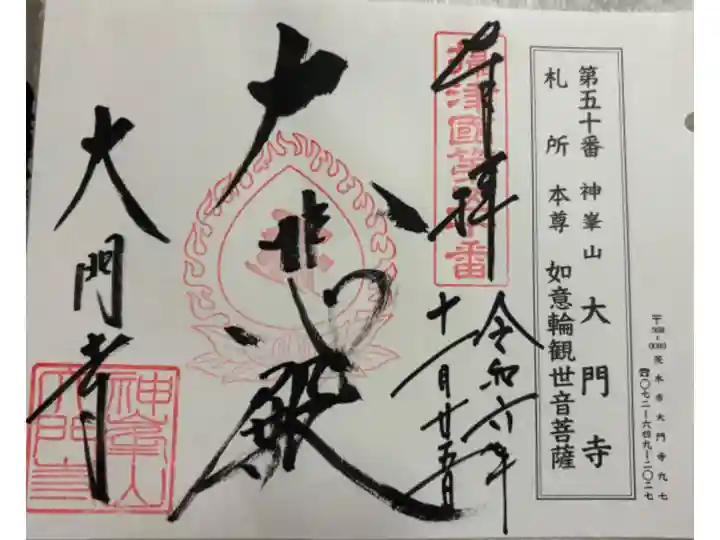 茨木市大門寺九七
☎〇七二ー六四九ー二〇二七
第五十番 神峯山 大門寺
札所本尊 如意輪観世音菩薩
奉拝
令和六年
十一月廿五日
大悲殿
大門寺
神峯山
大門寺